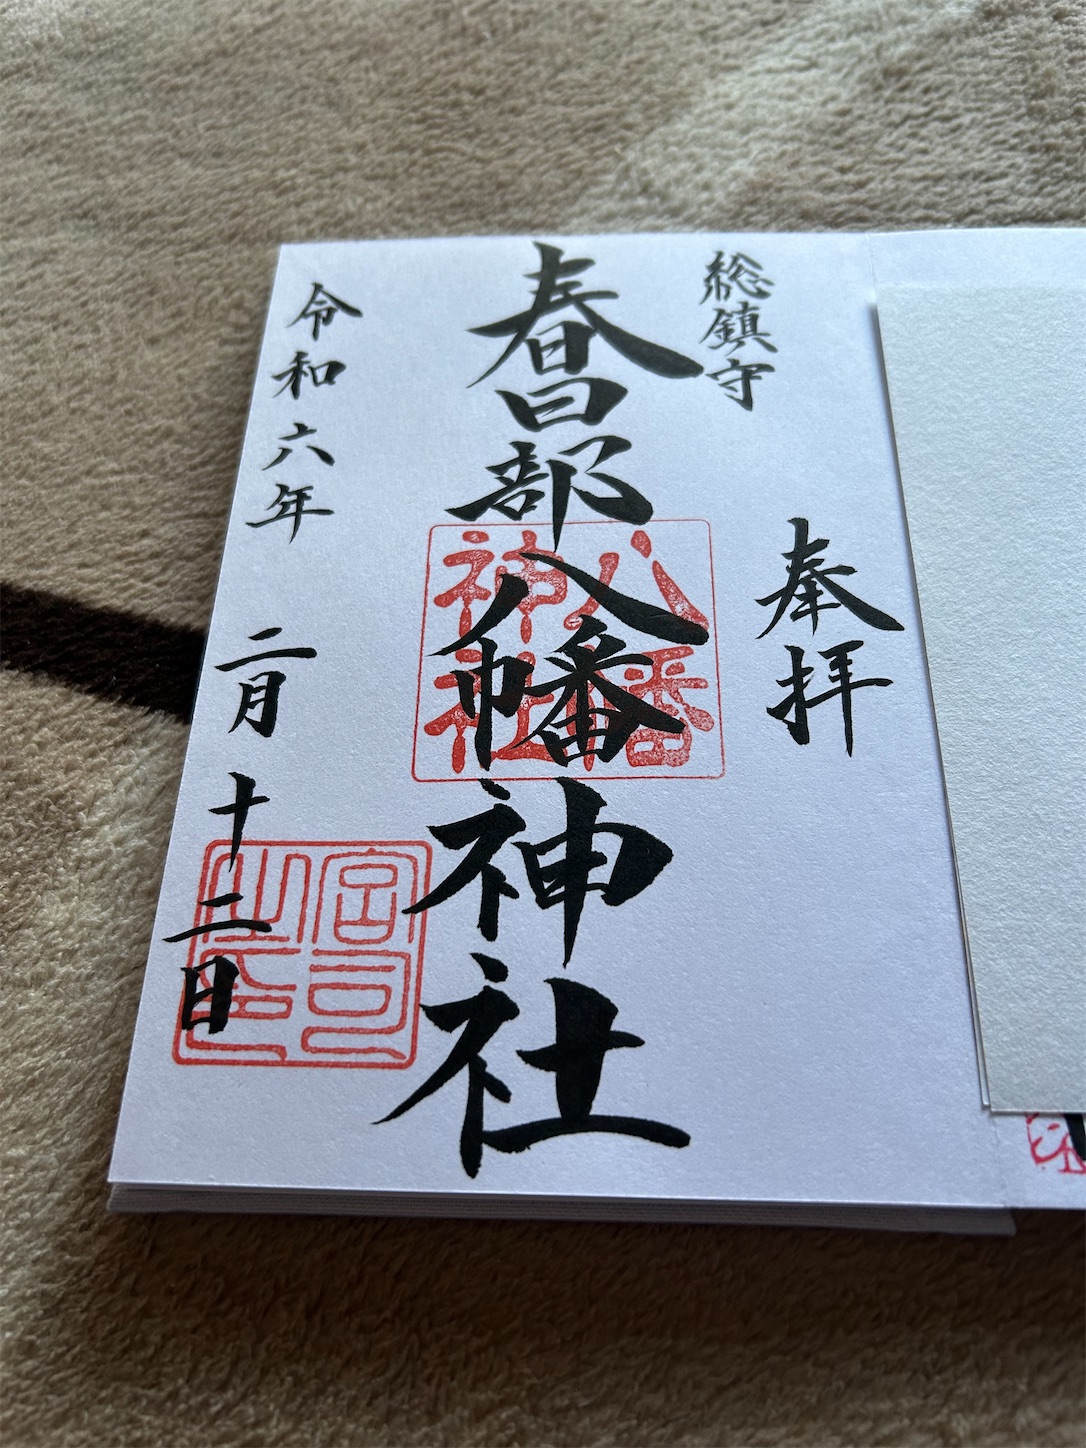 総鎮守
奉拝
春日部八幡神社
八幡
神社
令和六年 二月 十二日
宮司
之印